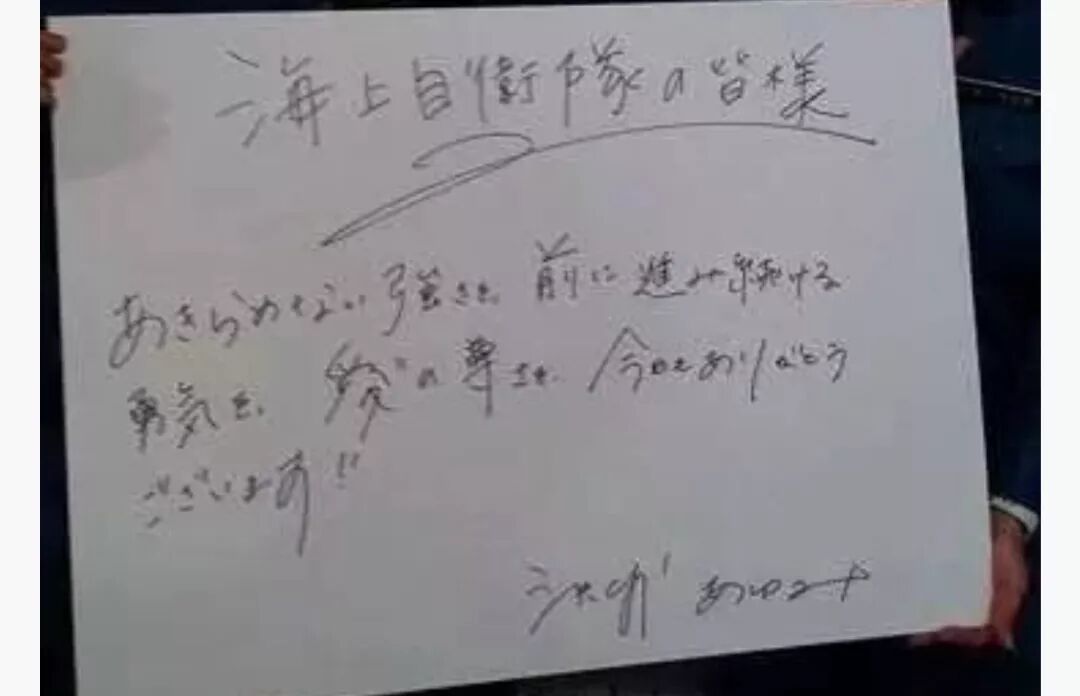 海上自衛隊の皆様
あきらめない強さを、前に進み続ける
勇気を、愛の尊さを、今日もありがとう
ございます!!
浜崎あゆみ